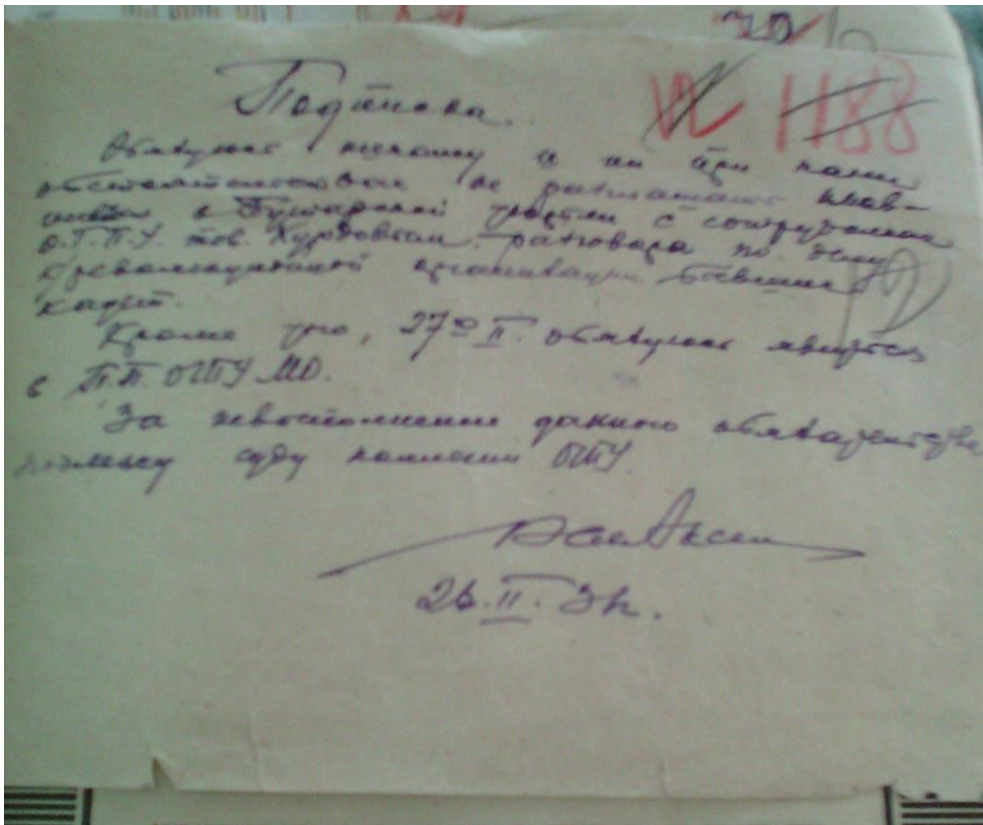 70
№ 1188
Подписка
Обязуюсь никому и ни при каких
обстоятельствах не разглашать
в Бутырской с сотрудником
О.Г.П.У. тов. разговора по делу
к/революционной организации бывших
кадет.
Кроме того, 27го II. обязуюсь явиться
в П.П. ОГПУ МО.
За невыполнение данного обязательства
подлежу суду коллегии ОГПУ.
26.II.31г.